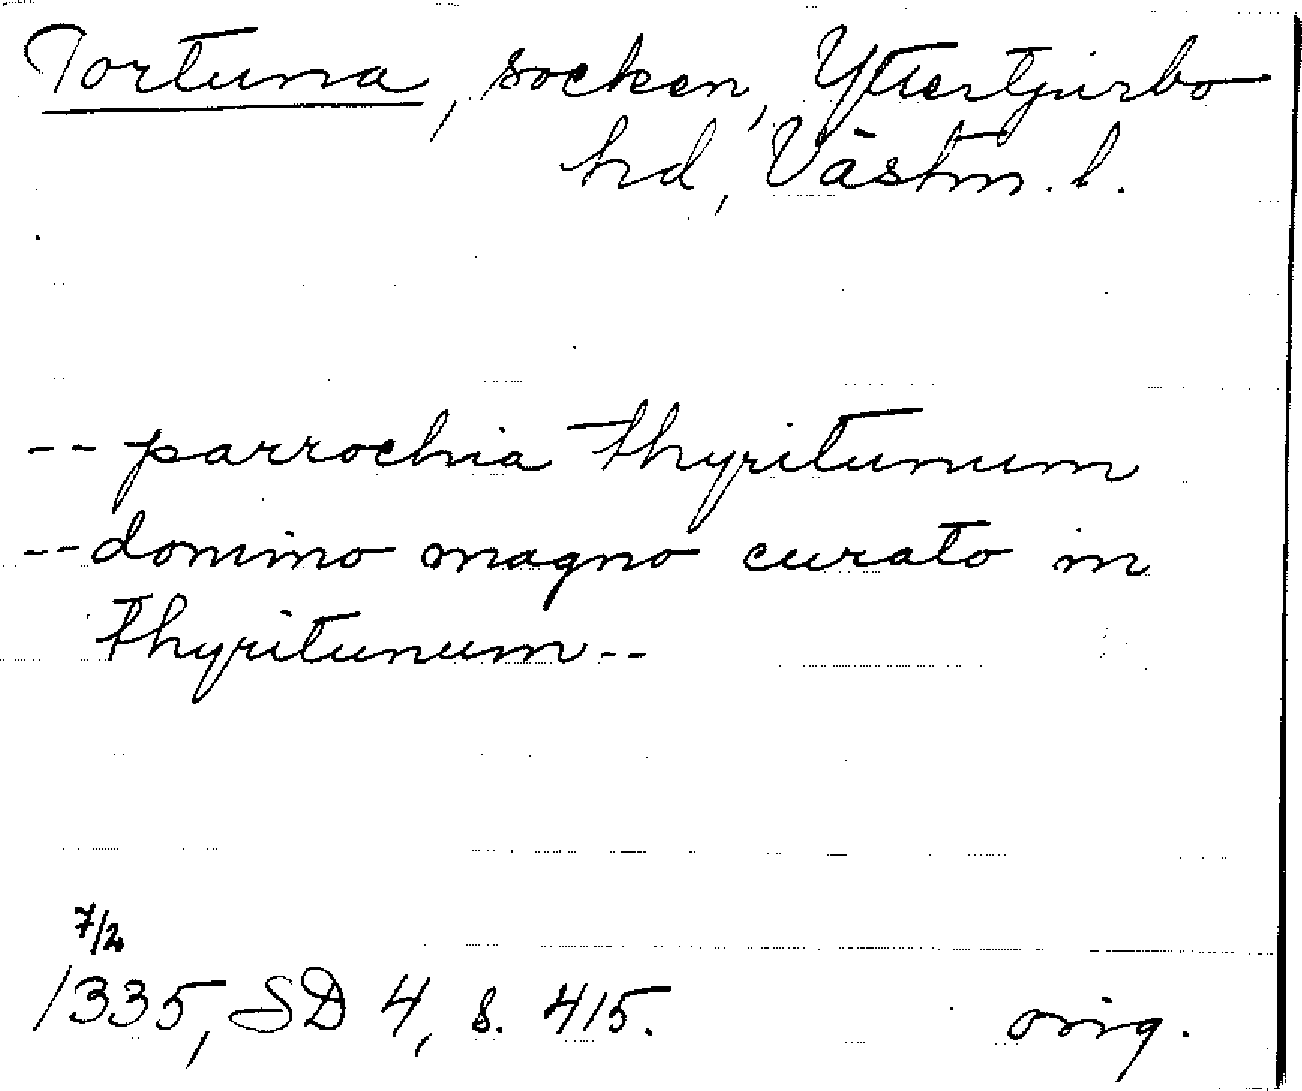 Tortuna, socken, Yttertjurbo
hd, Västm. l.
-- parrochia thyritunum
-- domino magno curato in
thyritunum --
7/2
1335, SD 4, s. 415. orig.